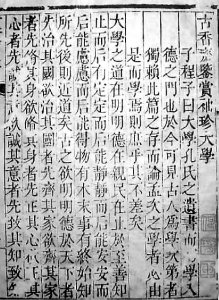 古香齋鑒賞袖珍大學
子程子曰大學孔氏之遺書而學入
德之門也於今可見古人為學次第者
獨賴此篇之存而論孟次之學者必由
是而學焉則庶乎其不差矣
大學之道在明明德在親民在止於至善知
止而后有定定而后能靜靜而后能安安而
后能慮慮而后能得物有本末事有終始知
所先後則近道矣古之欲明明德於天下者
先治其國欲治其國者先齊其家欲齊其家
者先脩其身欲脩其身者先正其心欲正其
心者先誠其意欲誠其意者先致其知致